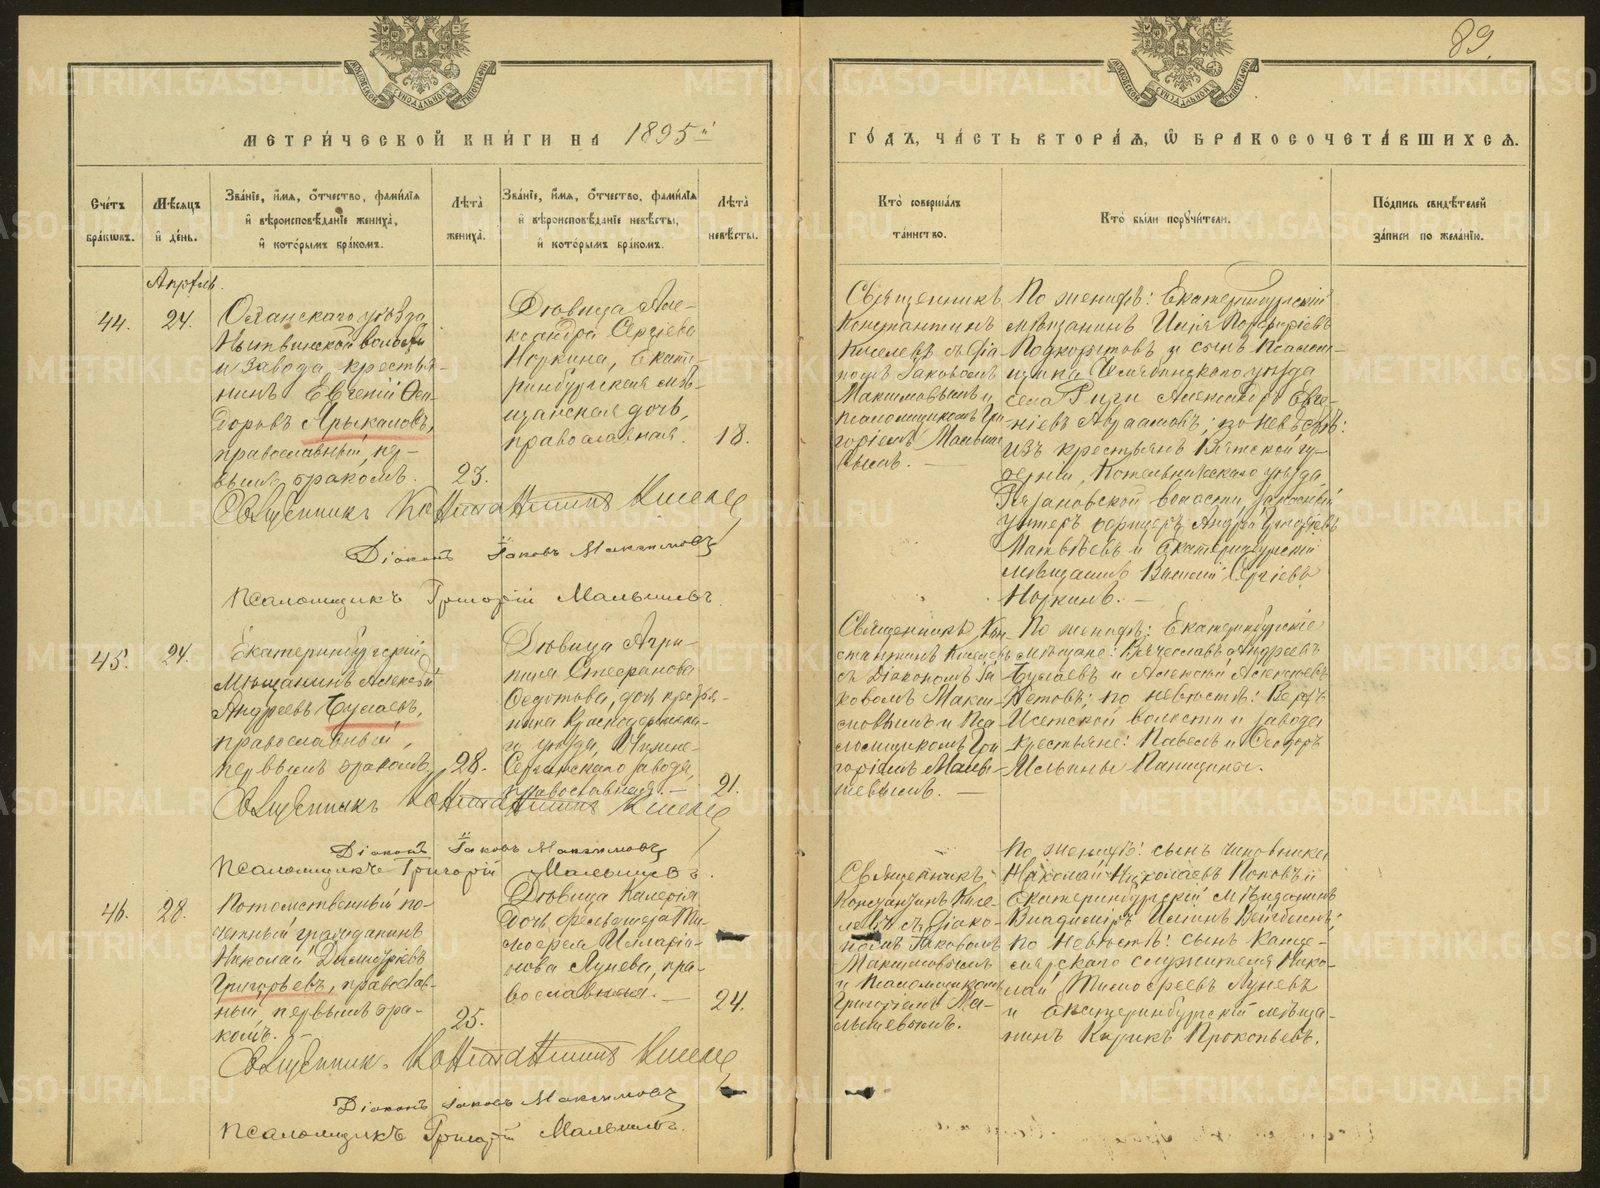 89.
МЕТРИ́ЧЕСКОЙ КНИ́ГИ НА 1895й
ГО́ДЪ, ЧА́СТЬ ВТОРА́Я, Ѡ БРАКОСОЧЕТА́ВШИХСЯ.
Сче́тъ бра́кѡвъ.
Мѣ́сяцъ и́ де́нь.
Зва́нїе, и́мя, о́тчество, фами́лїя и вѣроисповѣ́данїе жениха̀, и́ кото́рымъ бра́комъ.
Лѣта̀ жениха̀.
Зва́нїе, и́мя, о́тчество, фами́лїя и́ вѣроисповѣ́данїе невѣ́сты, и́ кото́рымъ бра́комъ.
Лѣта̀ невѣ́сты.
Кто̀ соверша́лъ та́инство.
Кто̀ бы́ли порꙋчи́тели.
По́дпись свидѣ́телей за́писи по жела́нїю.
Апрѣль.
44.
24.
Оханскаго уѣзда,
Нытвинской волости
и завода, крестья-
нинъ Евгеній Ѳео-
доровъ Ярыкаловъ,
православный, пер-
вымъ бракомъ.
23.
Дѣвица Але-
ксандра Сергѣева
Норкина, Екате-
ринбургская мѣ-
щанская дочь,
православная.
18.
Священникъ
Константинъ
Киселевъ съ діа-
кономъ Іаковомъ
Максимовымъ и
псаломщикомъ Гри-
горіемъ Малыше-
вымъ. —
По женихѣ: Екатеринбургскій
мѣщанинъ Илія Порфиріевъ
Подкорытовъ и сынъ псалом-
щика Челябинскаго уѣзда
села Александръ Евге-
ніевъ Авраамовъ; по невѣстѣ:
изъ крестьянъ Вятской гу-
берніи, Котельническаго уѣзда,
волости, запасный
унтеръ офицеръ Андрей Григорьевъ
Матвѣевъ и Екатеринбургскій
мѣщанинъ Василій Сергѣевъ
Норкинъ. —
Священникъ Константинъ Киселевъ
Діаконъ Іаковъ Максимовъ
Псаломщикъ Григорій Малышевъ.
45.
24.
Екатеринбургскій
мѣщанинъ Алексѣй
Андреевъ Булаевъ,
православный,
первымъ бракомъ,
28.
Дѣвица Агри-
пина Стефанова
Ѳедотова, дочь крестья-
нина Красноуфимска-
го уѣзда, Нижне-
Сергинскаго завода,
православная. —
21.
Священникъ Кон-
стантинъ Киселевъ
съ діакономъ Іа-
ковомъ Макси-
мовымъ и Пса-
ломщикомъ Гри-
горіемъ Малы-
шевымъ. —
По женихѣ: Екатеринбургскіе
мѣщане: Вячеславъ Андреевъ
Булаевъ и Алексѣй Алексѣевъ
Кетовъ; по невѣстѣ: Верхъ
Исетской волости и завода
крестьяне: Павелъ и Ѳеодоръ
Ильины Паницины.
Священникъ Константинъ Киселевъ
Діаконъ Іаковъ Максимовъ
Псаломщикъ Григорій Малышевъ.
46.
28.
Потомственный по-
четный гражданинъ
Николай Димитріевъ
Григорьевъ, православ-
ный первымъ бра-
комъ. —
25.
Дѣвица Калерія
дочь фельдшера Ти-
моѳея Илларіо-
нова Лунева, пра-
вославная. —
24.
Священникъ
Константинъ Кисе-
левъ съ діако-
номъ Іаковомъ
Максимовымъ
и псаломщикомъ
Григоріемъ Ма-
лышевымъ.
По женихѣ: сынъ чиновника
Николай Николаевъ Поповъ и
Екатеринбургскій мѣщанинъ
Владиміръ Илiинъ Вейбинъ;
по невѣстѣ: сынъ канце-
лярскаго служителя Нико-
лай Тимоѳеевъ Луневъ
и Екатеринбургскій мѣща-
нинъ Кирикъ Прокопьевъ.
Священникъ Константинъ Киселевъ
Діаконъ Іаковъ Максимовъ
Псаломщикъ Григорій Малышевъ.
METRIKI.GASO-URAL.RU